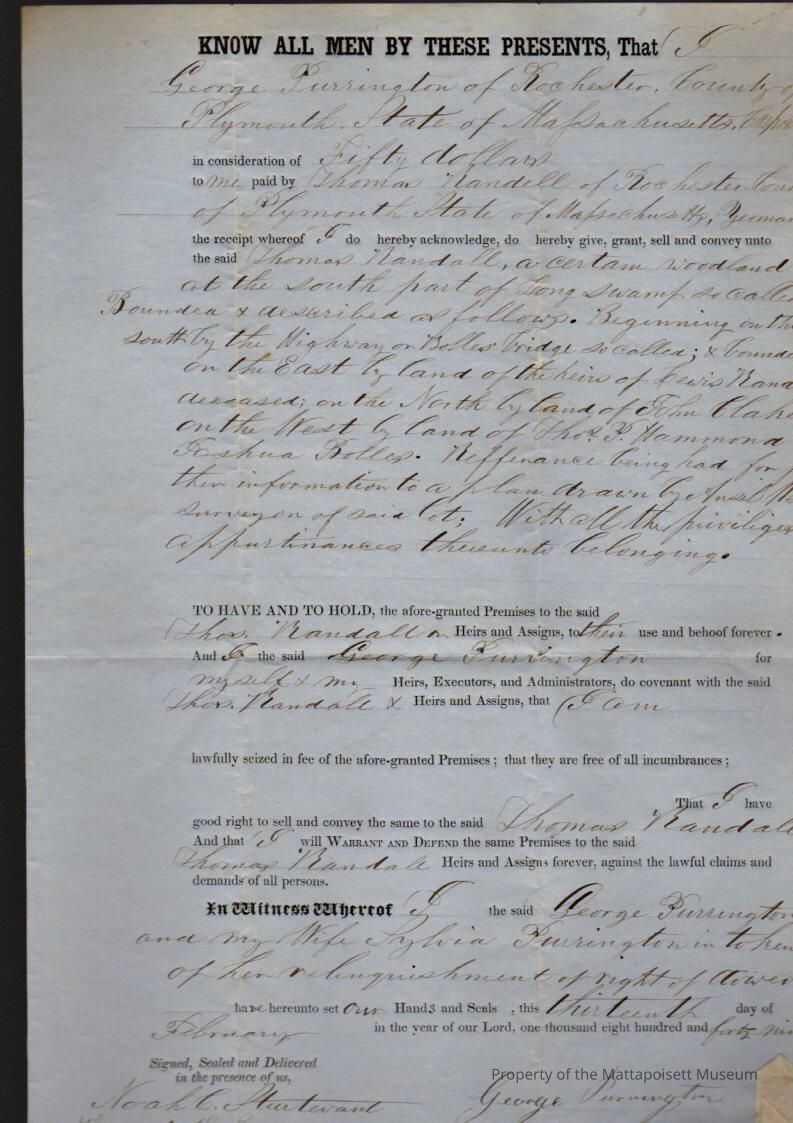 KNOW ALL MEN BY THESE PRESENTS, That I
George Purrington of Rochester, County of
Plymouth. State of Massachusetts,
in consideration of Fifty dollars
to me paid by Thomas Randell of Rochester Coun
of Plymouth State of Massachusetts, Yeoman
the receipt whereof I do hereby acknowledge, do hereby give, grant, sell and convey unto
the said Thomas Randall, a certain woodland
at the south part of Long swamp so called
Bounded & described as follows. Beginning on the
south by the Highway on Bolles' bridge so called; & bounde
on the East by land of the heirs of Lewis Rand
deceased; on the North by land of John Clark
on the West by land of Thos. P. Hammond
Joshua Bolles. Refferance being had for
ther information to a plan drawn by Ansil
surveyor of said lot; With all the priviliges
appurtinances thereunto belonging.
TO HAVE AND TO HOLD, the afore-granted Premises to the said
Thos. Randall or Heirs and Assigns, to their use and behoof forever.
And I the said George Purrington for
myself & my Heirs, Executors, and Administrators, do covenant with the said
Thos. Randall & Heirs and Assigns, that I am
lawfully seized in fee of the afore-granted Premises; that they are free of all incumbrances;
That I have
good right to sell and convey the same to the said Thomas Randall
And that I will WARRANT AND DEFEND the same Premises to the said
Thomas Randall Heirs and Assigns forever, against the lawful claims and
demands of all persons.
In Witness Whereof I the said George Purrington
and my Wife Sylvia Purrington in token
of her relinquishment of right of dower
have hereunto set our Hands and Seals, this thirteenth day of
February in the year of our Lord, one thousand eight hundred and forty nin
Signed, Sealed and Delivered
in the presence of us,
Property of the Mattapoisett Museum
Noah C. Sturtevant George Purrington